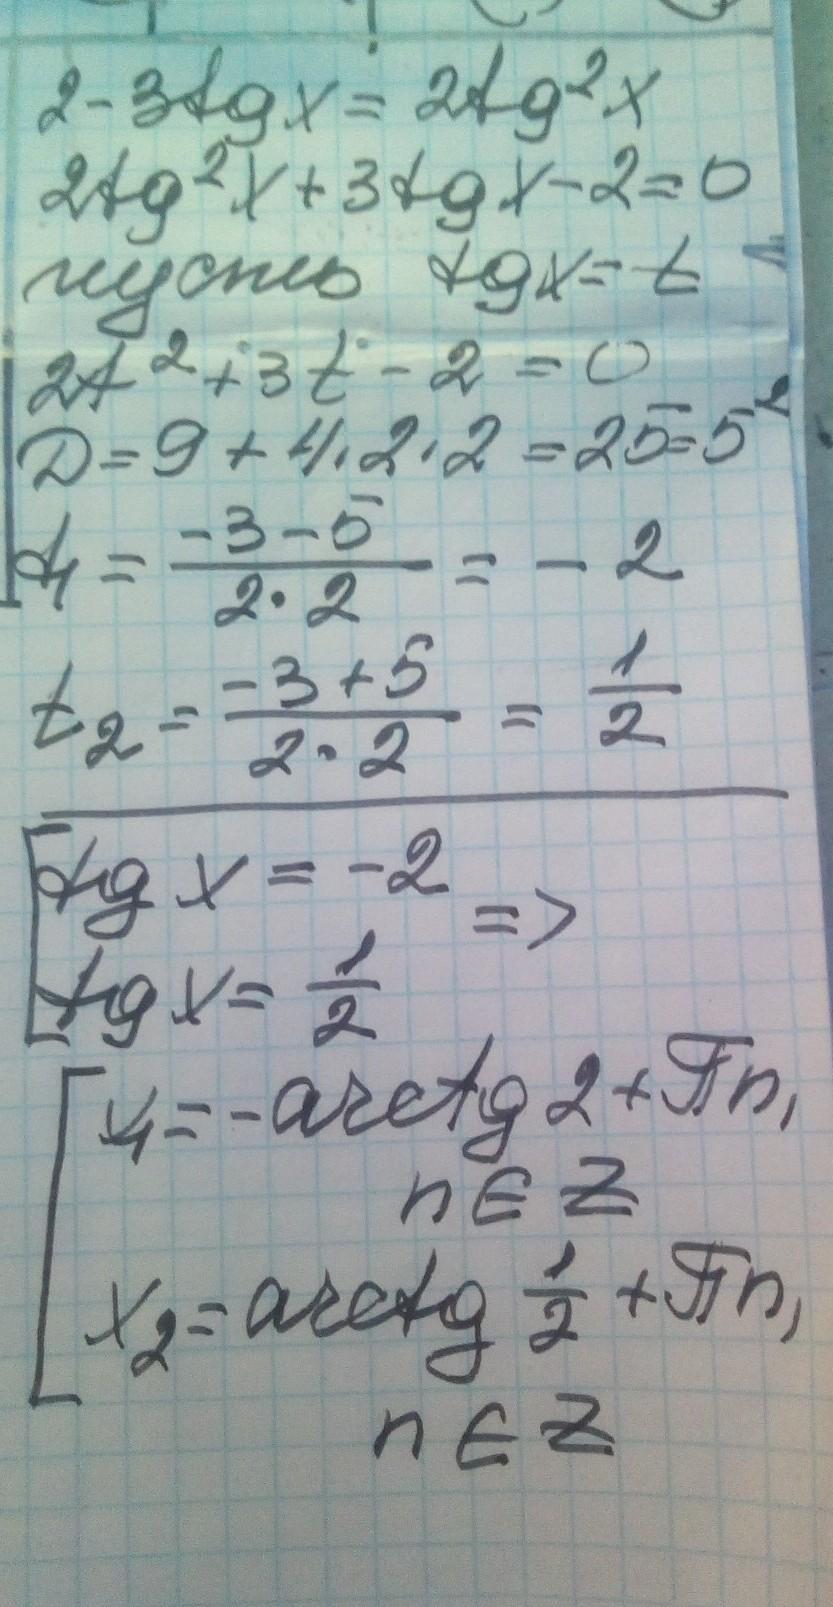 2 - 3tg x = 2tg²x
2tg²x + 3tg x - 2 = 0
пусть tg x = t
2t² + 3t - 2 = 0
D = 9 + 4·2·2 = 25 = 5²
t₁ = (-3 - 5)/(2·2) = - 2
t₂ = (-3 + 5)/(2·2) = 1/2
[tg x = -2 =>
tg x = 1/2
[x₁ = - arctg 2 + πn,
n ∈ Z
x₂ = arctg 1/2 + πn,
n ∈ Z